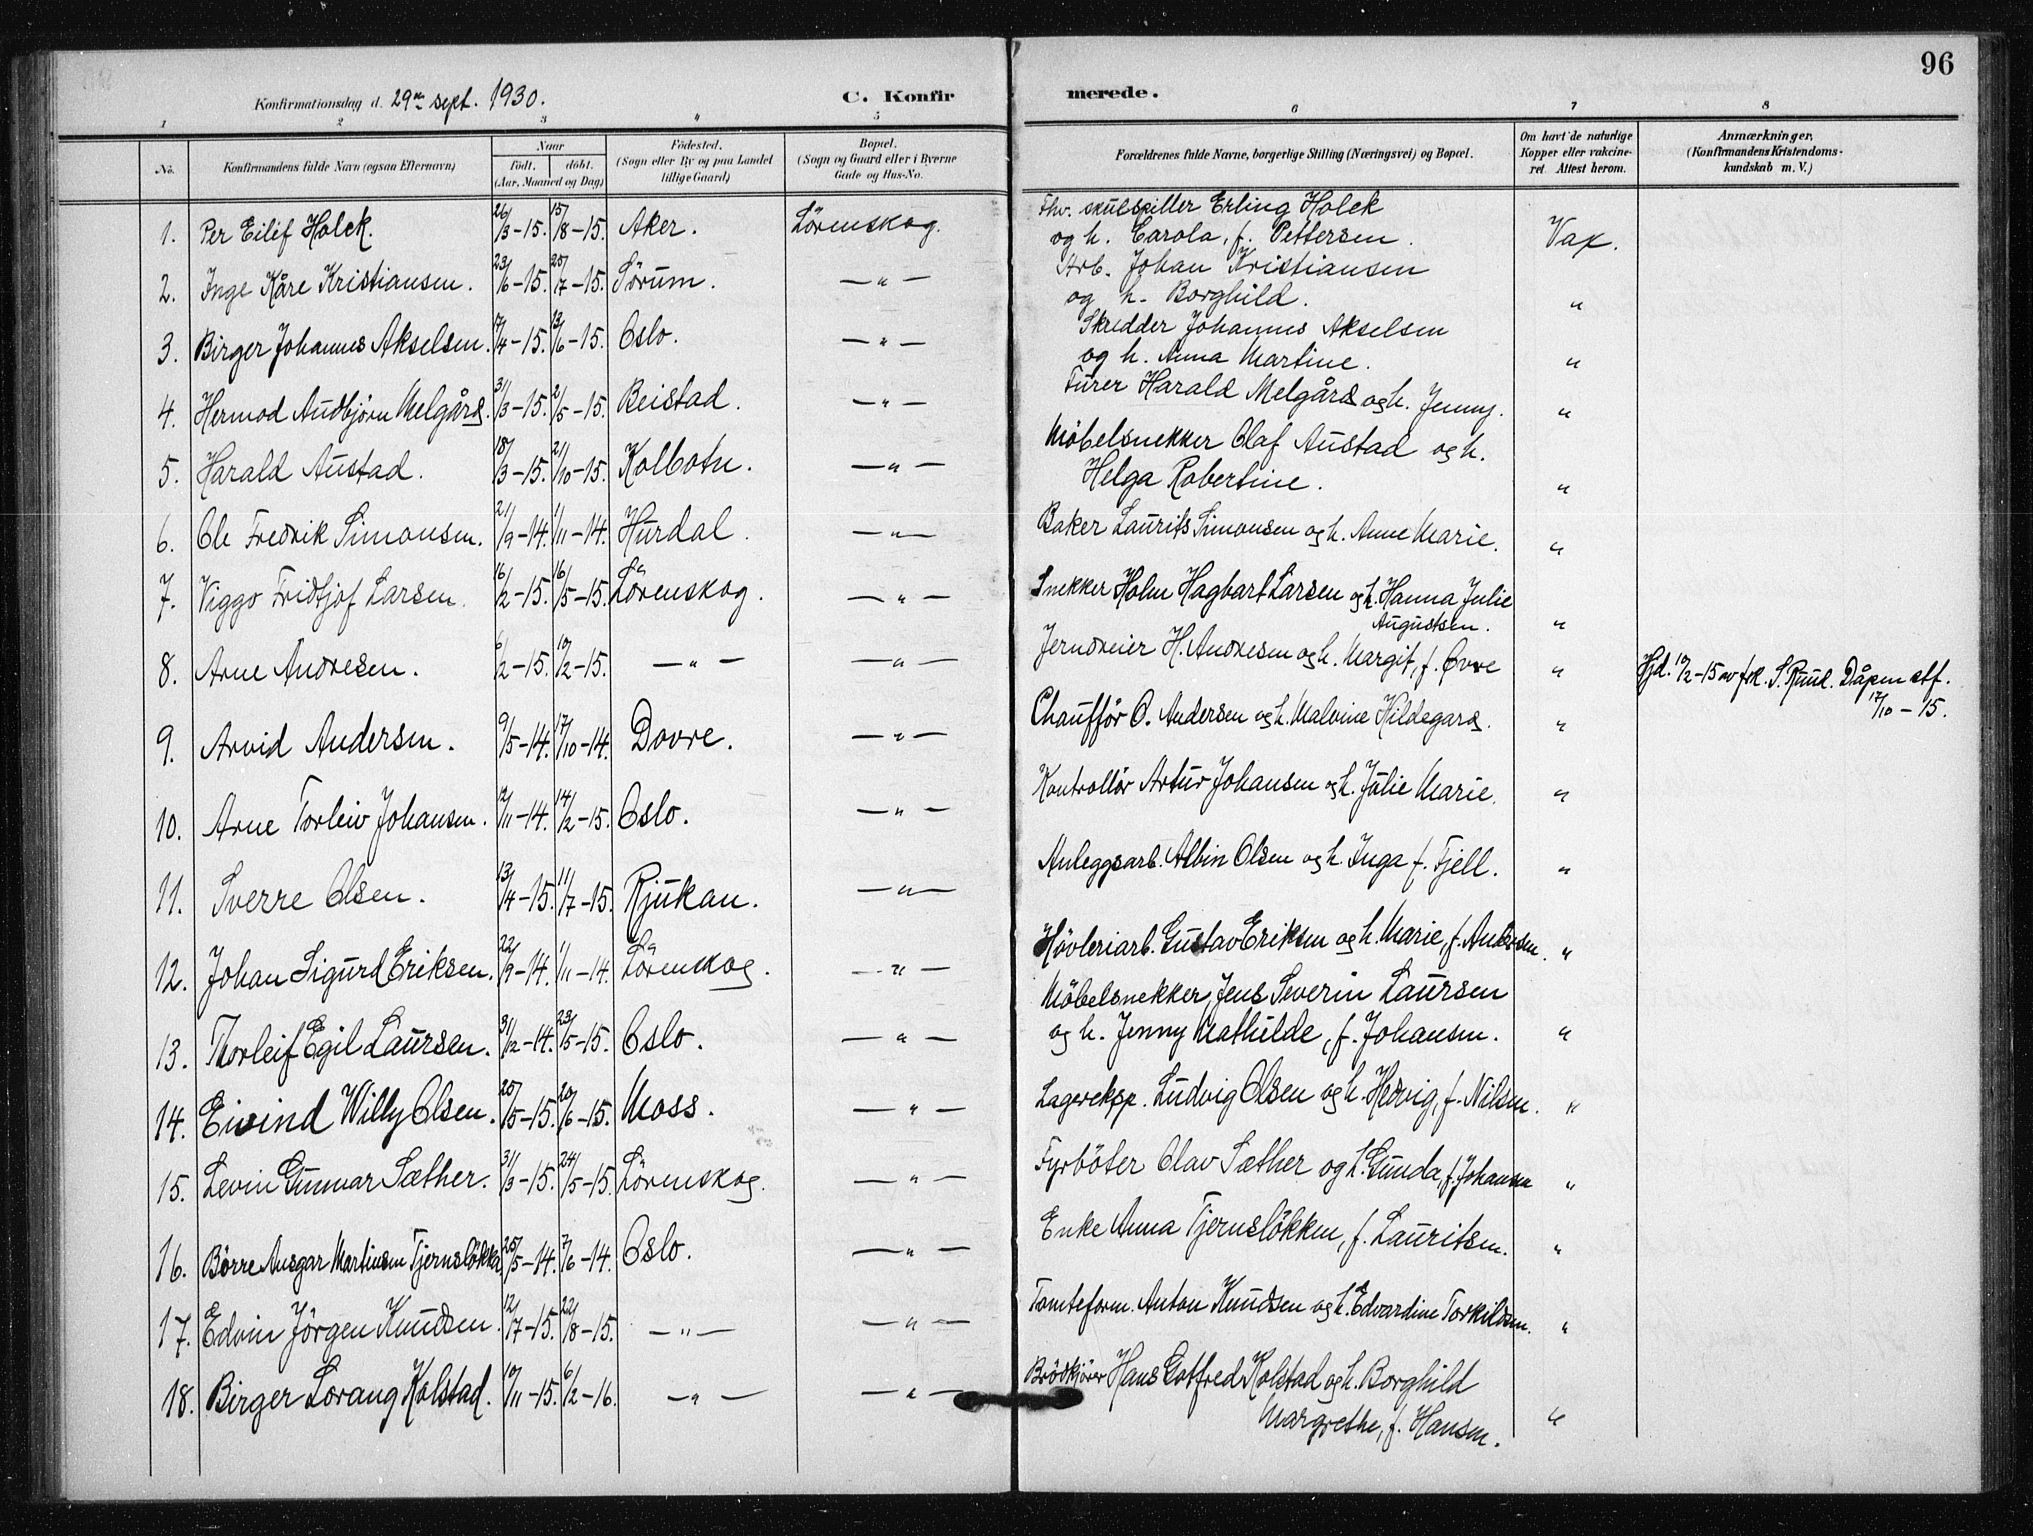 96
Konfirmationsdag d. 29de sept. 1930. C. Konfirmerede.
1 2 3 4 5 6 7 8
No. Konfirmandens fulde Navn (ogsaa Efternavn) Naar født. døbt. (Aar, Maaned og Dag) Fødested. (Sogn eller By og paa Landet tillige Gaard) Bopæl. (Sogn og Gaard eller i Byerne Gade og Hus-No. Forældrenes fulde Navne, borgerlige Stilling (Næringsvei) og Bopæl. Om havt de naturlige Kopper eller vakcineret. Attest herom. Anmærkninger, (Konfirmandens Kristendomskundskab m. V.)
1. Per Eilif Holck. 26/3-15. 15/8-15. Aker. Lörenskog. Fhv. skuespiller Erling Holck
og h. Carola, f. Pettersen. Vax.
2. Inge Kåre Kristiansen. 23/6-15. 25/7-15. Sørum. —"— Arb. Johan Kristiansen
og h. Borghild. "
3. Birger Johannes Akselsen. 17/4-15. 13/6-15. Oslo. —"— Skredder Johannes Akselsen
og h. Anna Martine. "
4. Hermod Audbjørn Melgård. 31/3-15. 2/5-15. Beistad. —"— Furer Harald Melgård og h. Jenny. "
5. Harald Austad. 18/3-15. 21/10-15. Kolbotn. —"— Möbelsnekker Olaf Austad og h.
Helga Robertine. "
6. Ole Fredrik Simonsen. 21/9-14. 1/11-14. Hurdal. —"— Baker Laurits Simonsen og h. Anne Marie. "
7. Viggo Fridtjof Larsen. 16/2-15. 16/5-15. Lörenskog. —"— Snekker Holm Hagbart Larsen og h. Hanna Julie
Augustsen. "
8. Arne Andresen. 6/2-15. 10/2-15. —"— —"— Jerndreier H. Andresen og h. Margit, f. Øvre " Hjd. 10/2-15 av frk. S. Ruud. Dåpen stf.
17/10-15.
9. Arvid Andersen. 9/5-14. 17/10-14. Dovre. —"— Chauffør O. Andersen og h. Malvine Hildegard. "
10. Arne Torleiv Johansen. 12/11-14. 14/2-15. Oslo. —"— Kontrollør Artur Johansen og h. Julie Marie. "
11. Sverre Olsen. 13/4-15. 11/7-15. Rjukan. —"— Anleggsarb. Albin Olsen og h. Inga f. Fjell. "
12. Johan Sigurd Eriksen. 22/9-14. 1/11-14. Lörenskog. —"— Hövleriarb. Gustav Eriksen og h. Marie, f. Andersen. "
13. Thorleif Egil Laursen. 31/12-14. 23/5-15. Oslo. —"— Möbelsnekker Jens Severin Laursen
og h. Jenny Mathilde, f. Johansen. "
14. Eivind Willy Olsen. 25/5-15. 20/6-15. Moss. —"— Lagereksp. Ludvig Olsen og h. Hedvig, f. Nilsen. "
15. Levin Gunnar Sæther. 31/3-15. 24/5-15. Lörenskog. —"— Fyrböter Olav Sæther og h. Gunda, f. Johansen "
16. Börre Ansgar Martinsen Tjernslökken 25/5-14. 7/6-14. Oslo. —"— Enke Anna Tjernslökken, f. Lauritsen. "
17. Edvin Jörgen Knudsen. 12/7-15. 22/8-15. —"— —"— Tomteform. Anton Knudsen og h. Edvardine Torkildsen. "
18. Birger Lorang Kolstad. 10/11-15. 6/2-16. —"— —"— Brödkjörer Hans Gotfred Kolstad og h. Borghild
Margrethe, f. Hansen. "